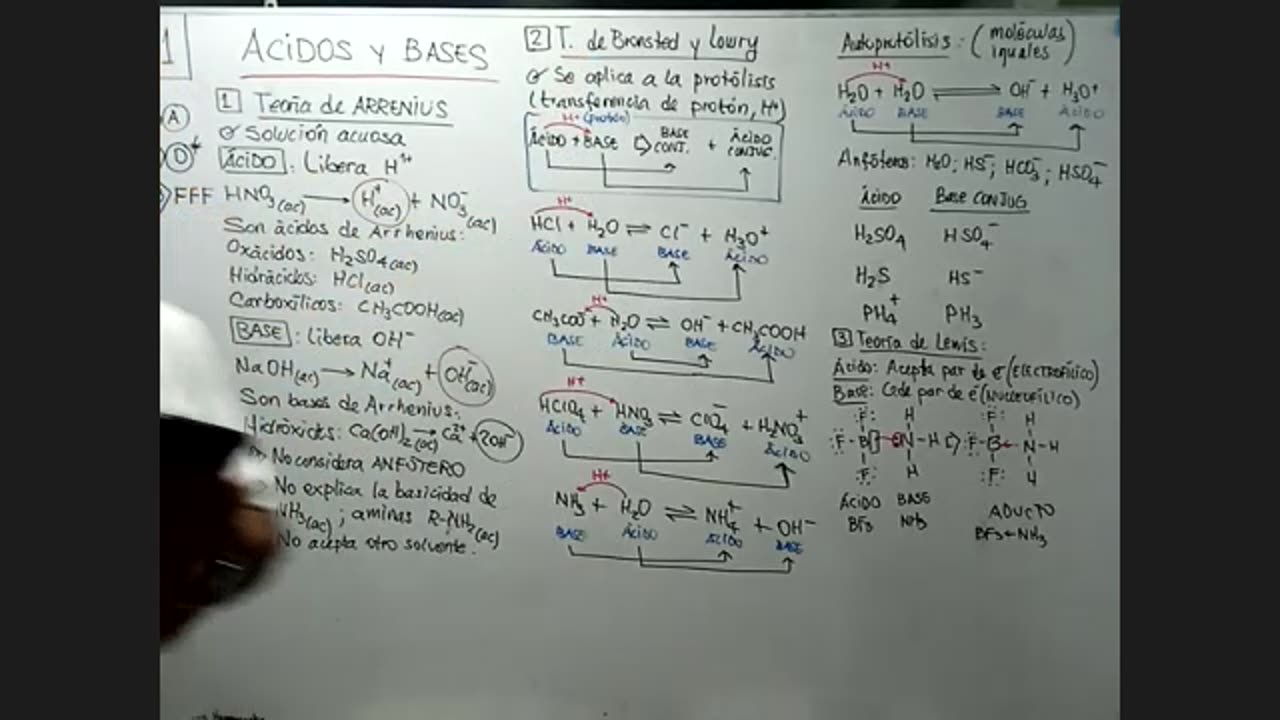 1
ÁCIDOS Y BASES
1 Teoría de ARRENIUS
Solución acuosa
ÁCIDO: Libera H1+
A
D
FFF
HNO3(ac) → H+(ac) + NO3-(ac)
Son ácidos de Arrhenius:
Oxácidos: H2SO4(ac)
Hidrácidos: HCl(ac)
Carboxílicos: CH3COOH(ac)
BASE: Libera OH-
NaOH(ac) → Na+(ac) + OH-(ac)
Son bases de Arrhenius:
Hidróxidos: Ca(OH)2(ac) → Ca2+ + 2OH-
No considera ANFÓTERO
No explica la basicidad de
NH3(ac); aminas R-NH2(ac)
No acepta otro solvente.
2 T. de Bronsted y Lowry
Se aplica a la protólisis
(transferencia de protón, H+)
H+ (protón)
Ácido + BASE ⇨ BASE CONJ. + ÁCIDO CONJUG.
H+
HCl + H2O ⇌ Cl- + H3O+
Ácido BASE BASE Ácido
H+
CH3COO- + H2O ⇌ OH- + CH3COOH
BASE Ácido BASE ÁCIDO
H+
HClO4 + HNO3 ⇌ ClO4- + H2NO3+
Ácido BASE BASE Ácido
H+
NH3 + H2O ⇌ NH4+ + OH-
BASE Ácido ÁCIDO BASE
Autoprotólisis: (moléculas iguales)
H+
H2O + H2O ⇌ OH- + H3O+
Ácido BASE BASE Ácido
Anfóteros: H2O; HS-; HCO3-; HSO4-
Ácido Base CONJUG
H2SO4 HSO4-
H2S HS-
PH4+ PH3
3 Teoría de Lewis:
Ácido: Acepta par de e- (ELECTROFÍLICO)
Base: Cede par de e- (NUCLEOFÍLICO)
F H F H
F-B N-H ⇨ F-B ← N-H
F H F H
ÁCIDO BASE ADUCTO
BF3 NH3 BF3←NH3